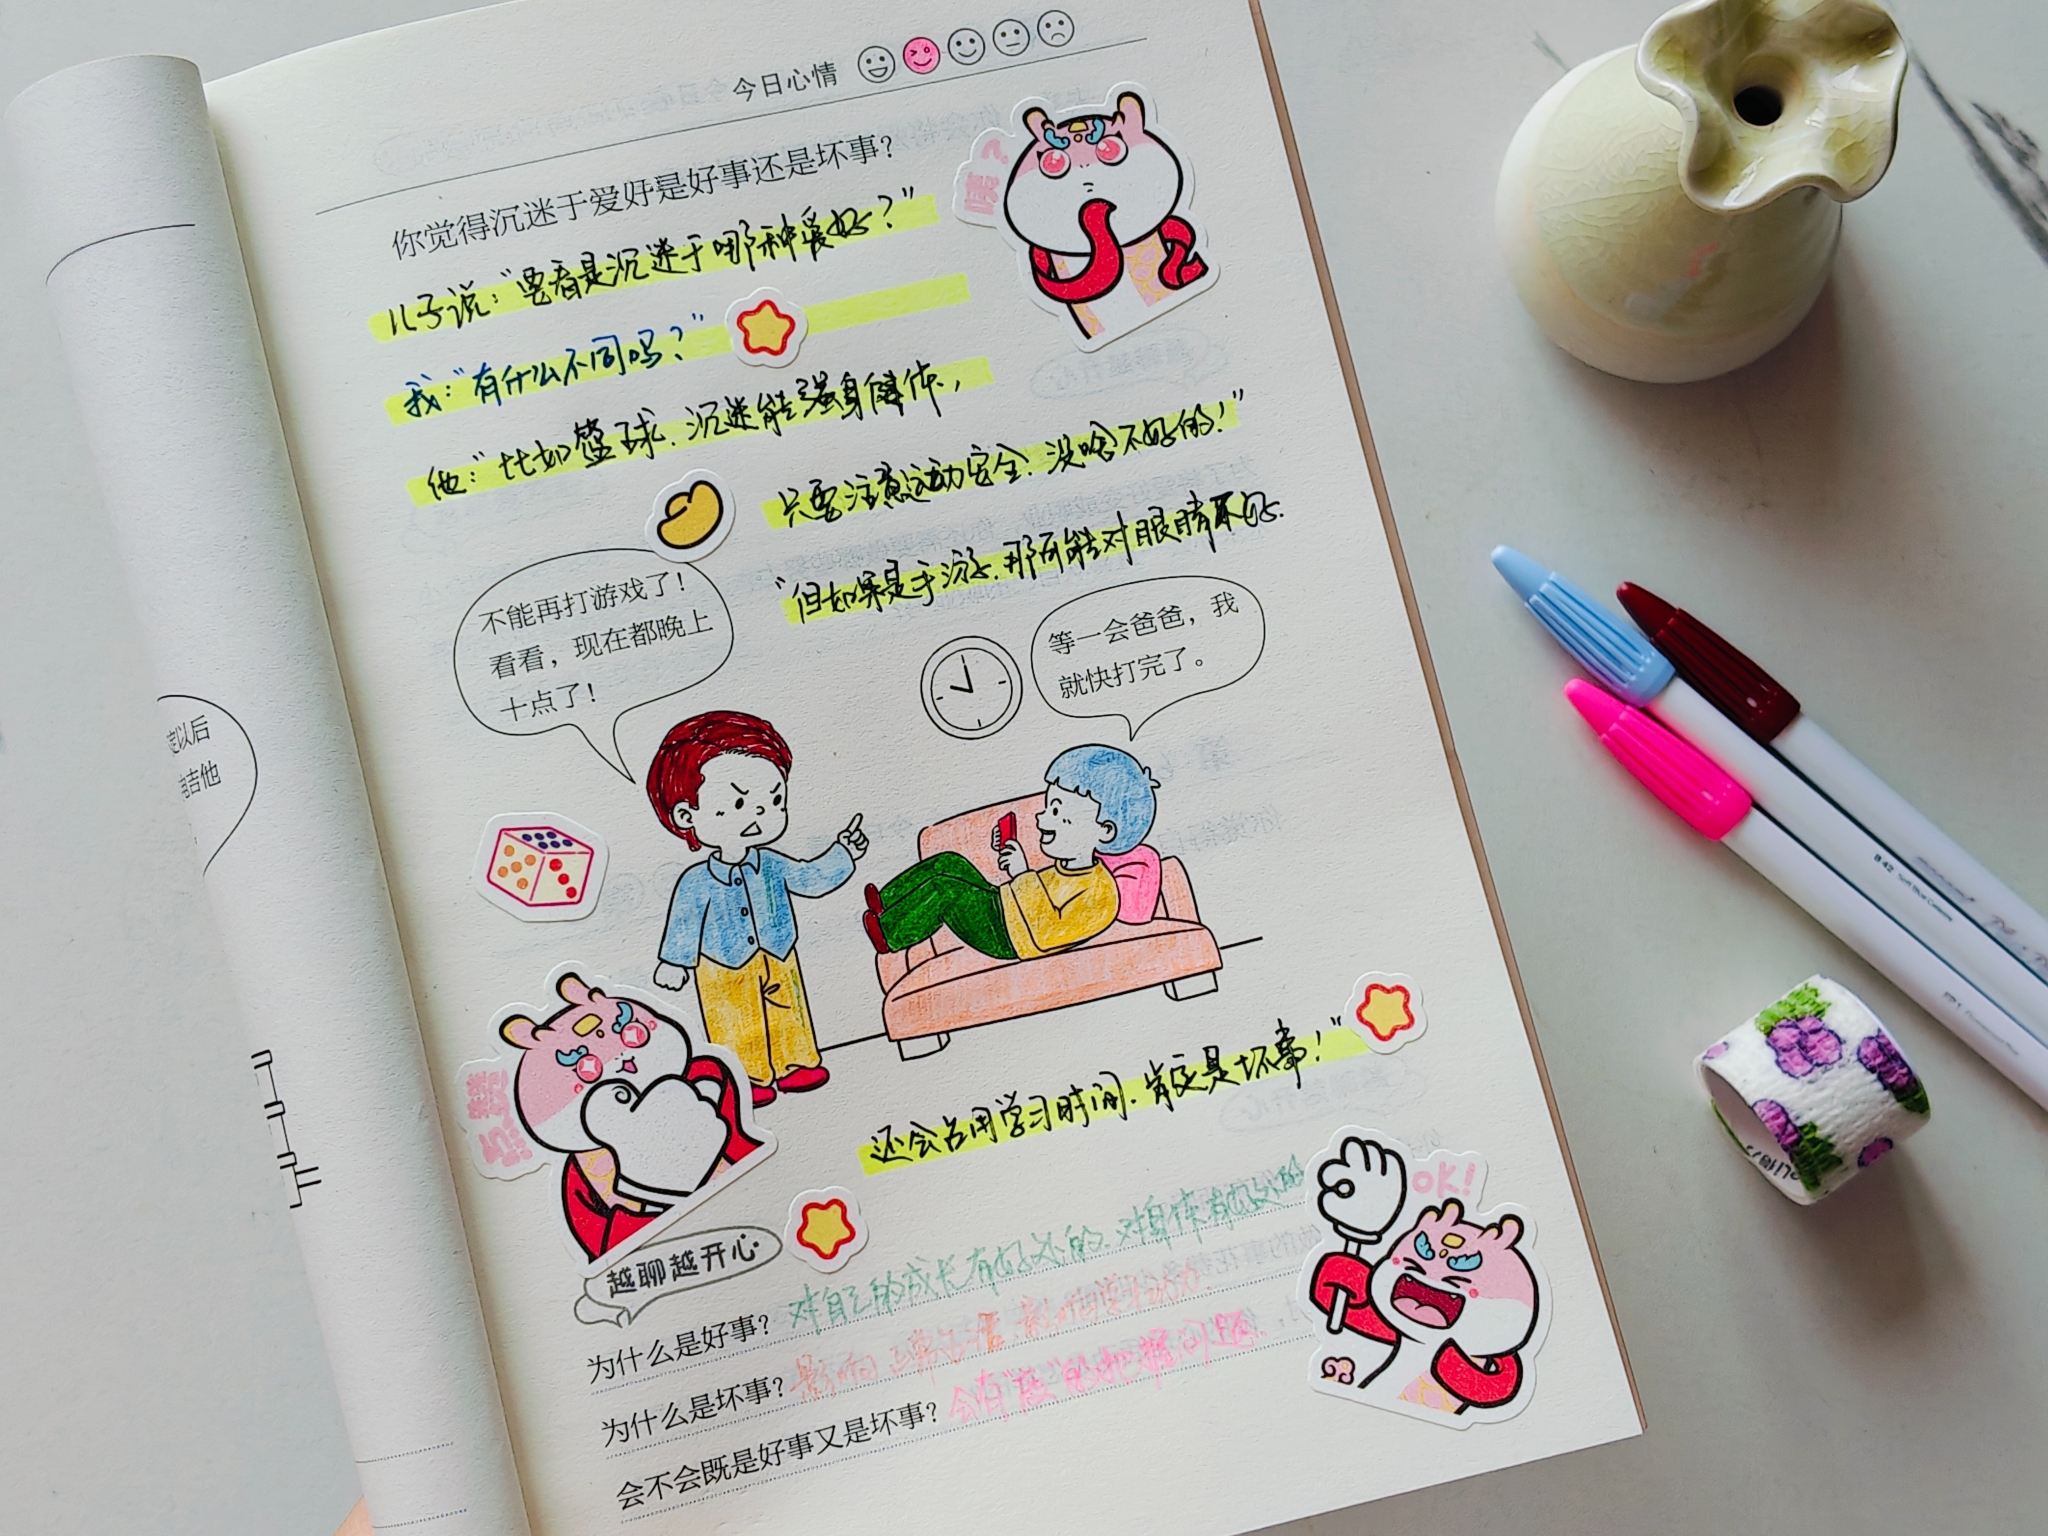 今日心情
你觉得沉迷于爱好是好事还是坏事?
儿子说:“要看是沉迷于哪种爱好?”
我:“有什么不同吗?”
他:“比如篮球.沉迷能强身健体,
只要注意运动安全.没啥不好的!”
“但如果是手游.那可能对眼睛不好.
不能再打游戏了!
看看,现在都晚上
十点了!
等一会爸爸,我
就快打完了。
定以后
告他
还会占用学习时间.肯定是坏事!”
OK!
越聊越开心
为什么是好事? 对自己的成长有好处的.对身体有好处的
为什么是坏事? 影响正常生活 影响学习
会不会既是好事又是坏事? 会有“度”的把握问题.